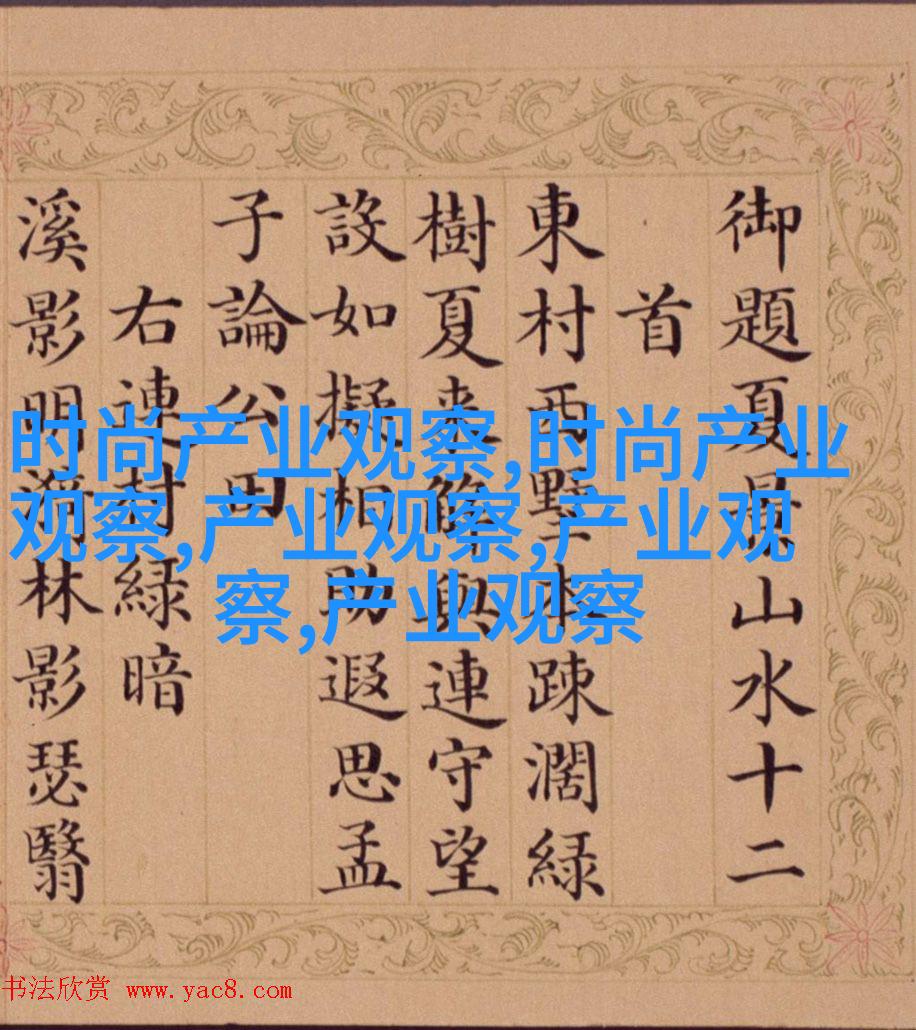 御題夏景山水十二
首
東村西墅本疎濶緑
樹夏來連守望
設如擬相助遐思孟
子論公田
右連村緑暗
溪影明漪林影瑟翳
时尚产业观察,时尚产业
观察,产业观察,产业观
察,产业观察
书法欣赏 www.yac8.com